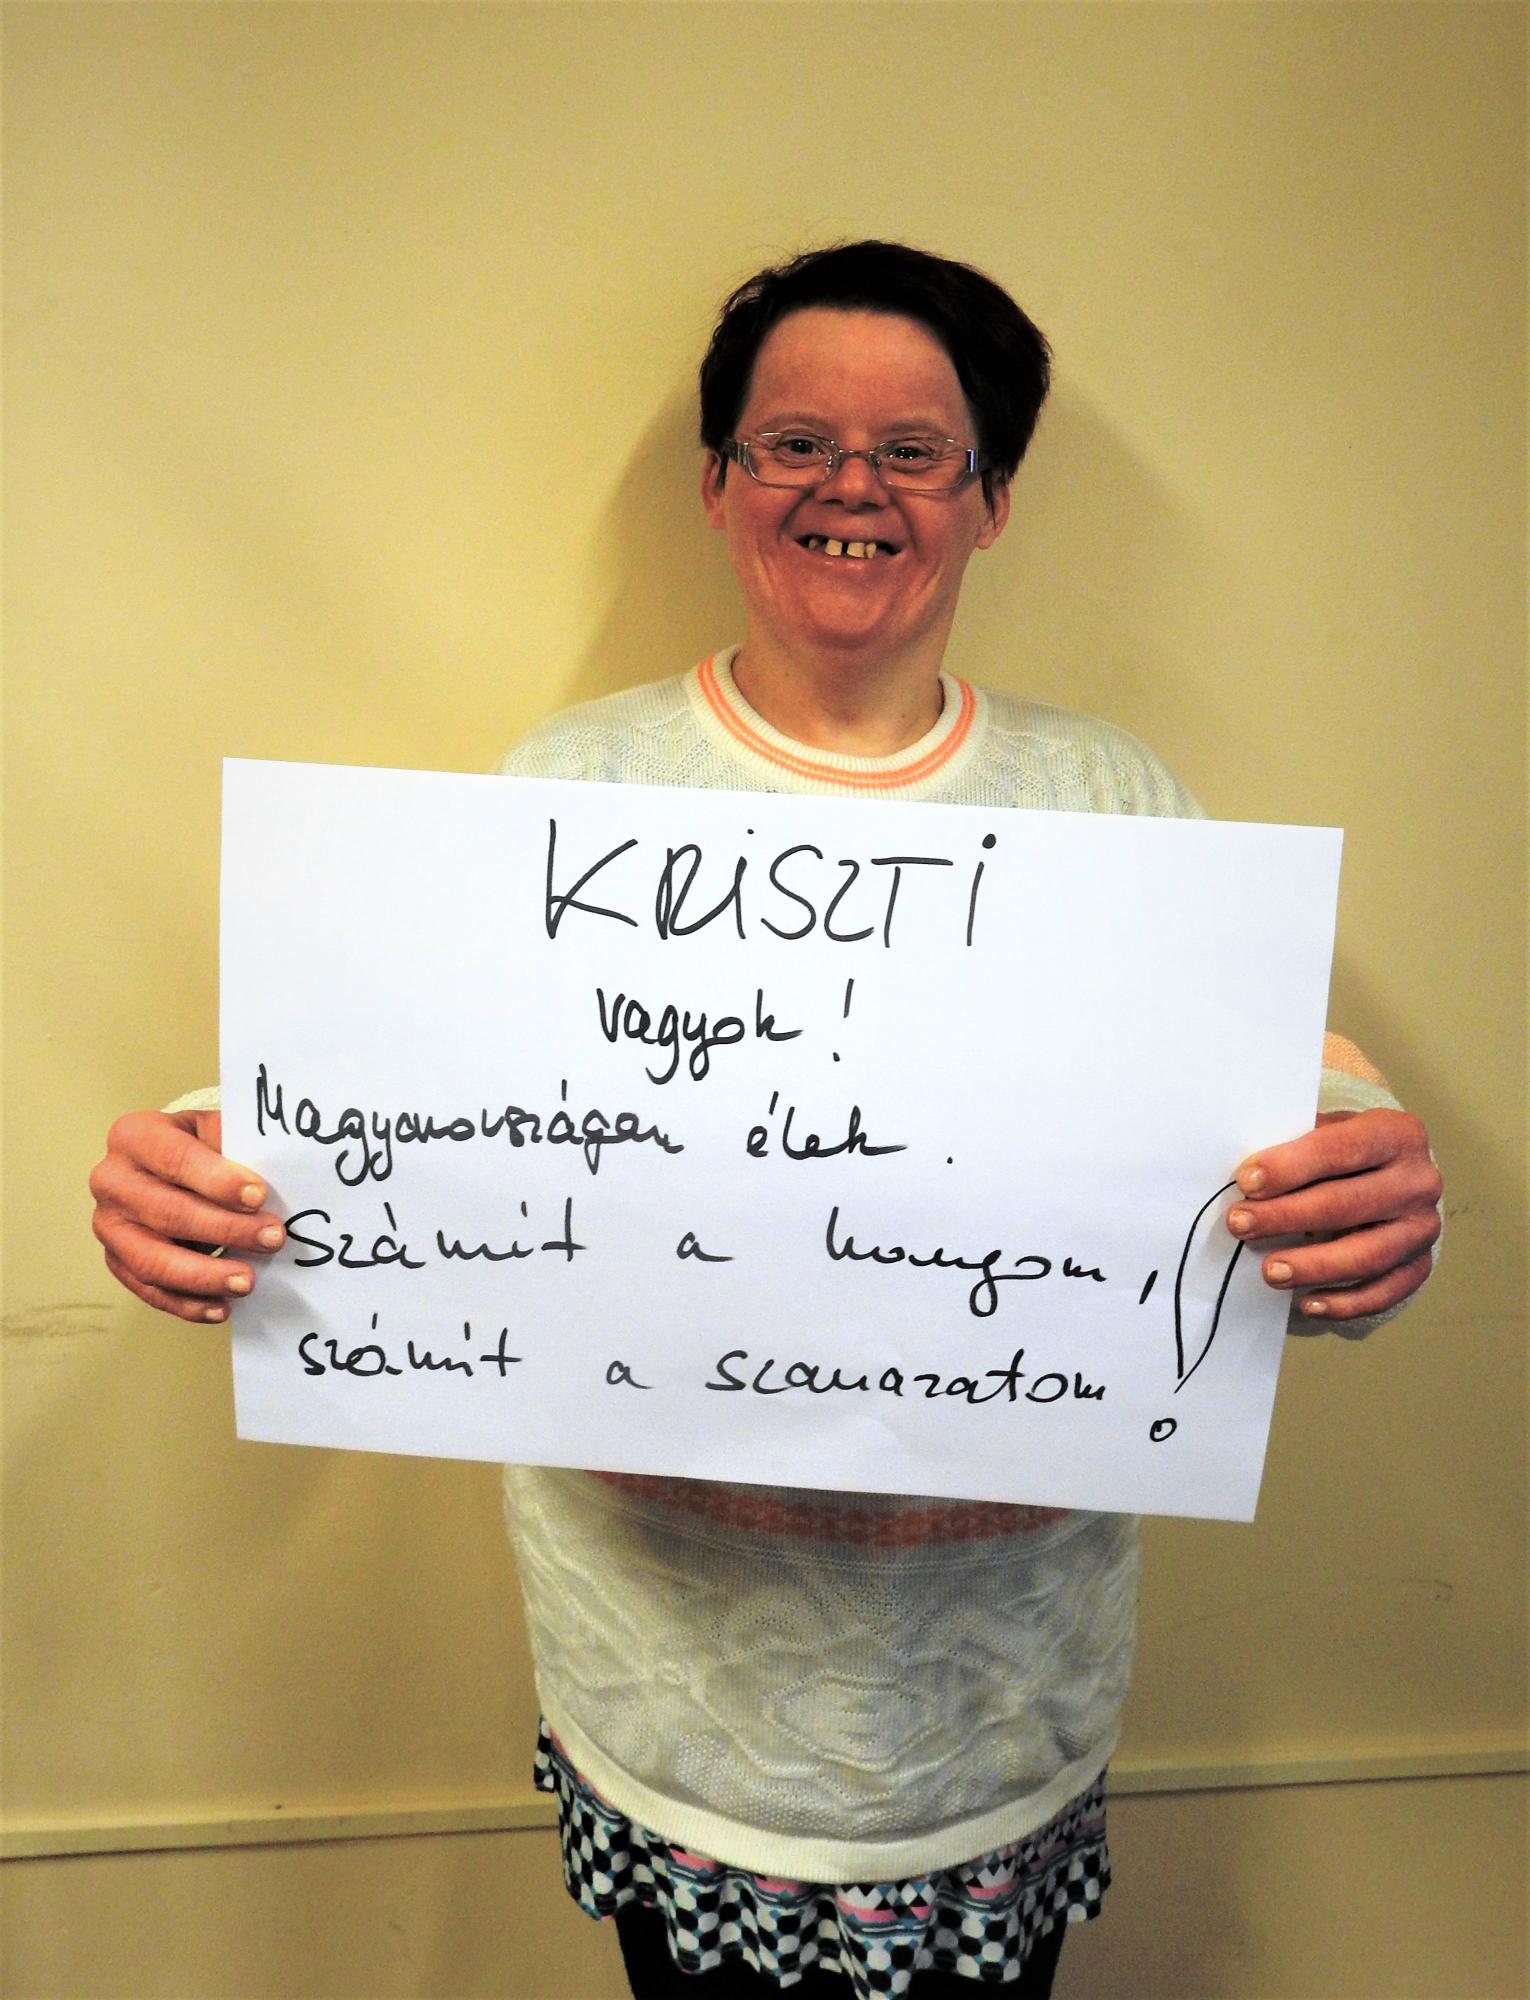 KRISZTI
vagyok!
Magyarországon élek.
Számít a hangom,
számít a szavazatom!